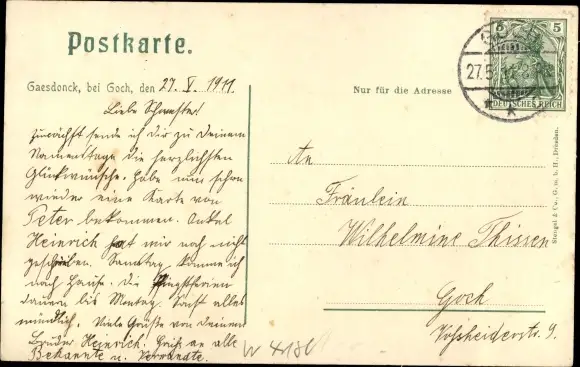 Postkarte.
Gaesdonck, bei Goch, den 27. V. 1911.
Nur für die Adresse
5 5
GOCH
27.5.
DEUTSCHES REICH
Liebe Schwester!
Zunächst sende ich dir zu deinem
Namenstage die herzlichsten
Glückwünsche. Habe nun schon
wieder eine Karte von
Peter bekommen. Onkel
Heinrich hat mir noch nicht
geschrieben. Samstag komme ich
nach Hause. Die Pfingstferien
dauern bis Montag. Sonst alles
mündlich. Viele Grüße von deinem
Bruder Heinrich. Gruß an alle
Bekannte u. Verwandte.
An
Fräulein
Wilhelmine Thissen
Goch
Voßheiderstr. 9.
Stengel & Co., G. m. b. H., Dresden.